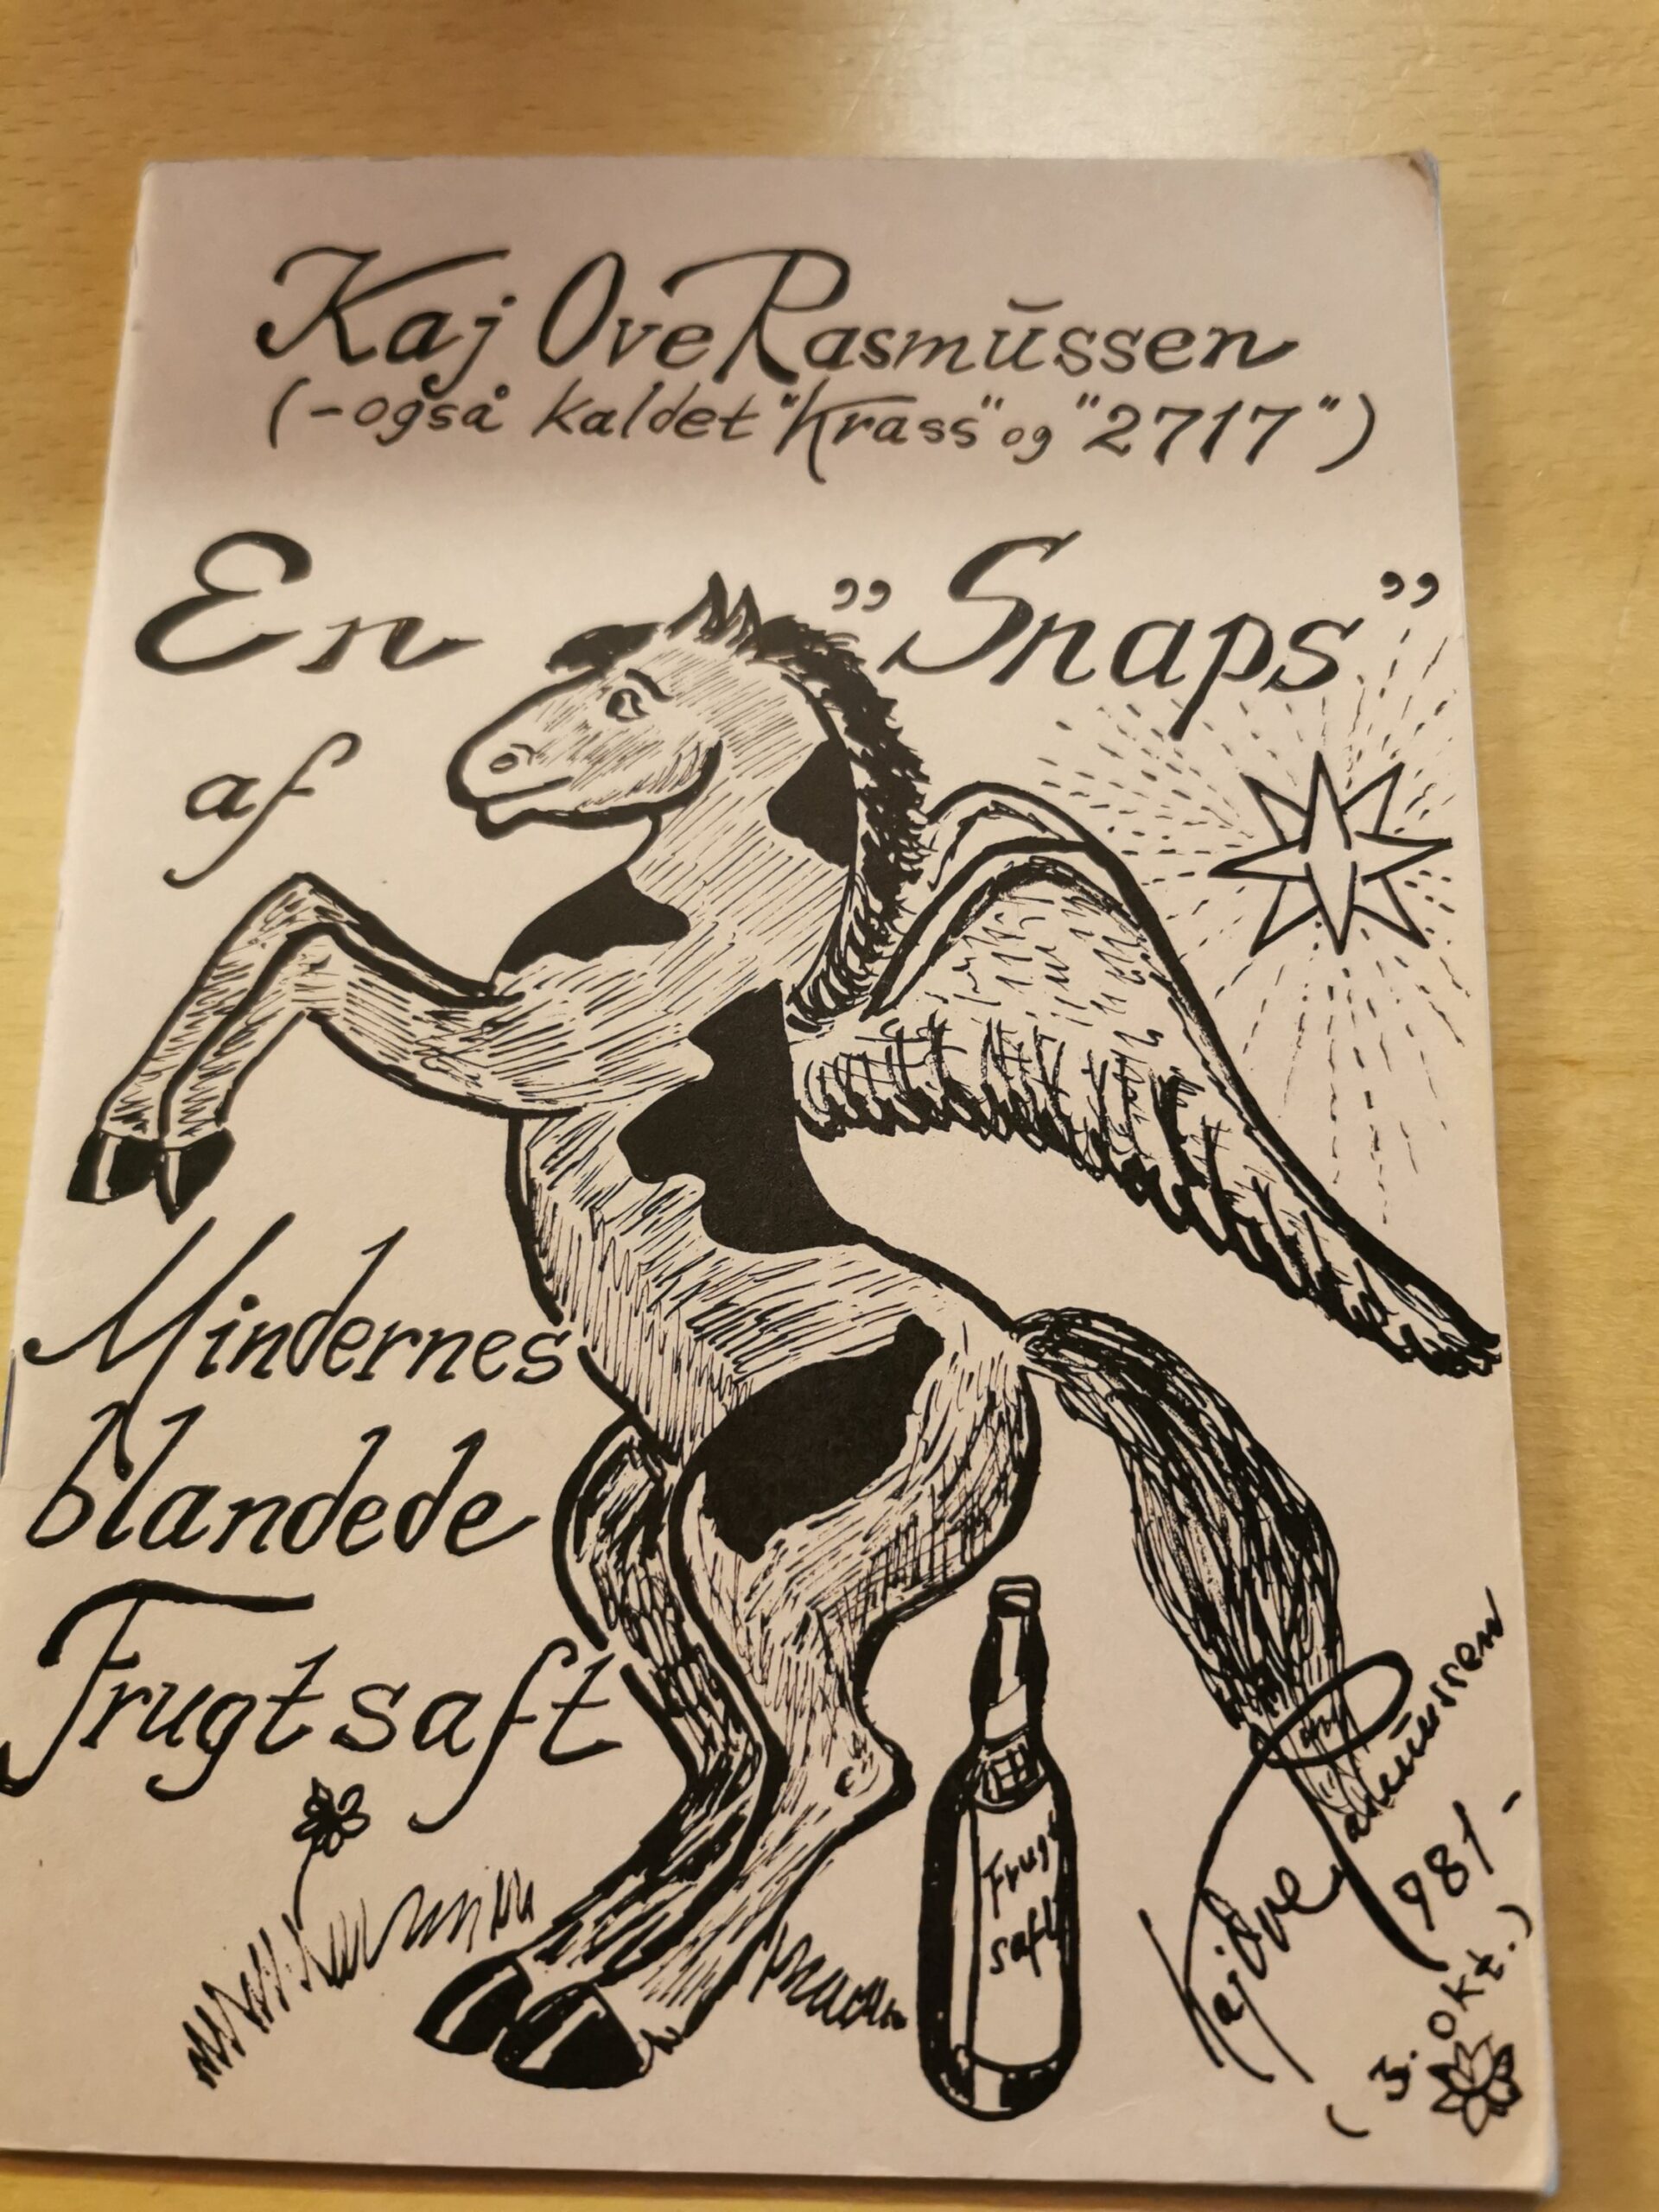 Kaj Ove Rasmŭssen
(-også kaldet "Krass" og "2717")
En "Snaps"
af
Mindernes
blandede
Frugtsaft
Frugt
saft
Kaj Ove Rasmussen
981-
(3. okt.)